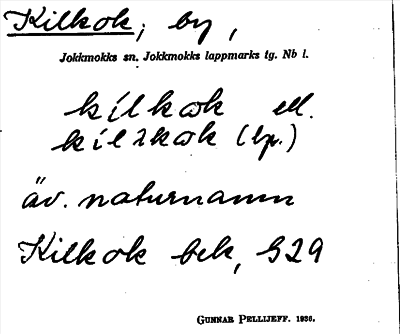 Kilkok; by,
Jokkmokks sn. Jokkmokks lappmarks tg. Nb l.
kílkɷk ell.
kílɜkɷk (lp.)
äv. naturnamn
Kilkok bek, G29
GUNNAR PELLIJEFF. 1936.